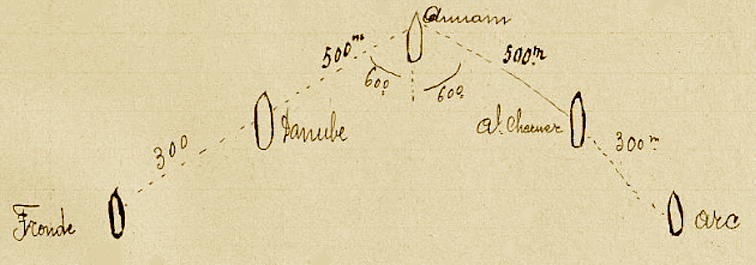 Annam
500m
500m
60°
60°
Danube
Al. Charner
300
300m
Fronde
Arc